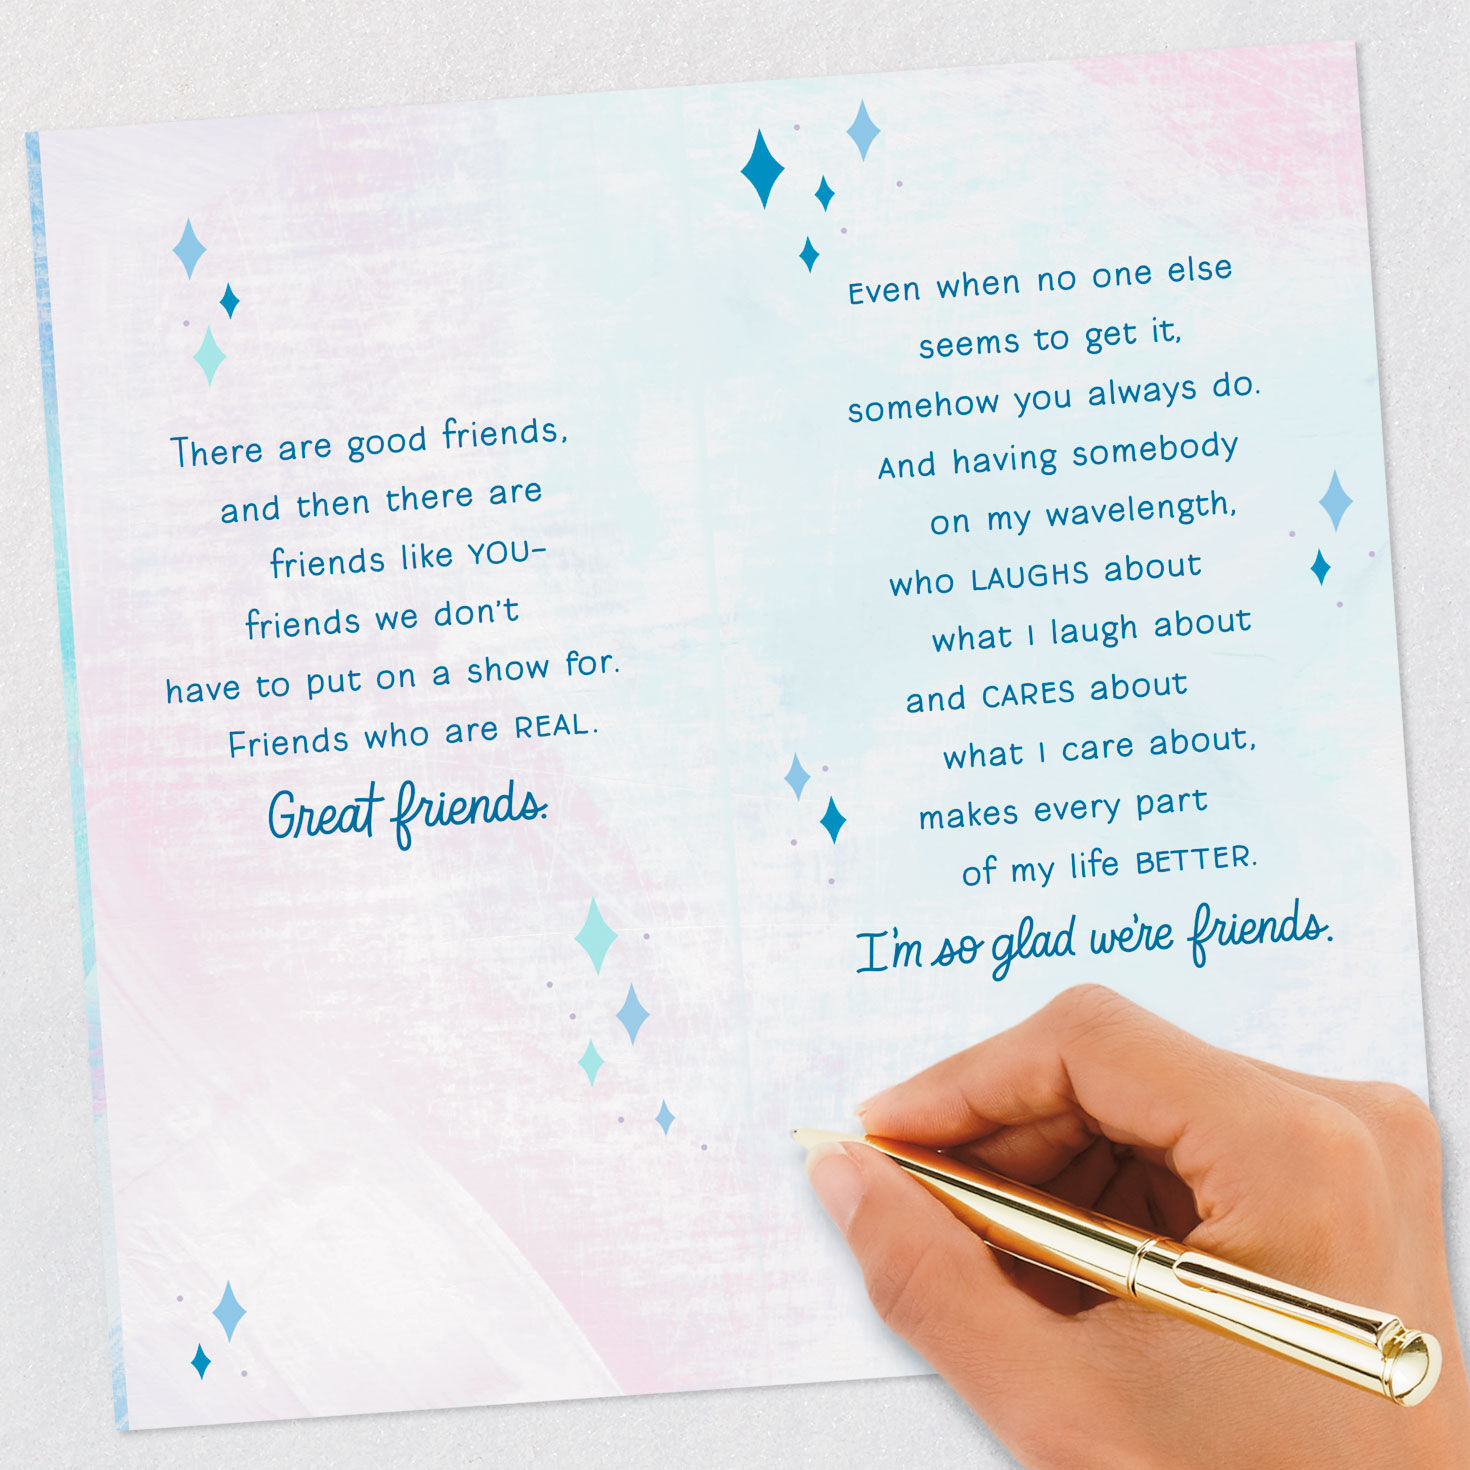 There are good friends,
and then there are
friends like YOU–
friends we don't
have to put on a show for.
Friends who are REAL.
Great friends.
Even when no one else
seems to get it,
somehow you always do.
And having somebody
on my wavelength,
who LAUGHS about
what I laugh about
and CARES about
what I care about,
makes every part
of my life BETTER.
I'm so glad we're friends.